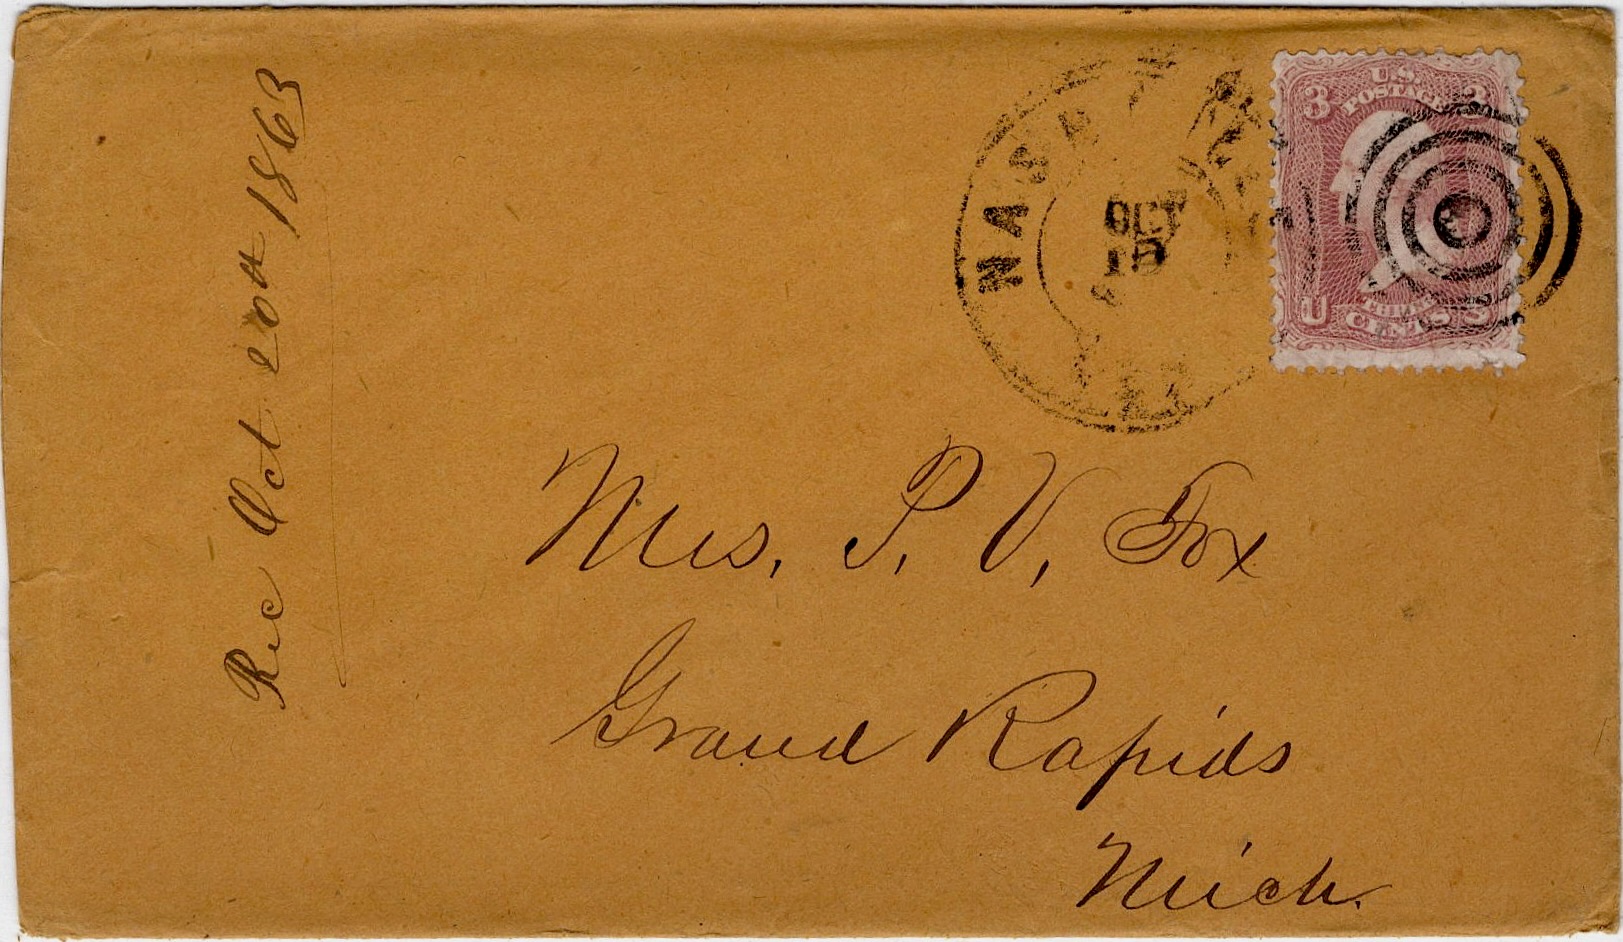 Rec Oct 20th 1863
NASHVILLE
OCT
U.S.
POSTAGE
3 3
U S
THREE
CENTS
Mrs. P. V. Fox
Grand Rapids
Mich.